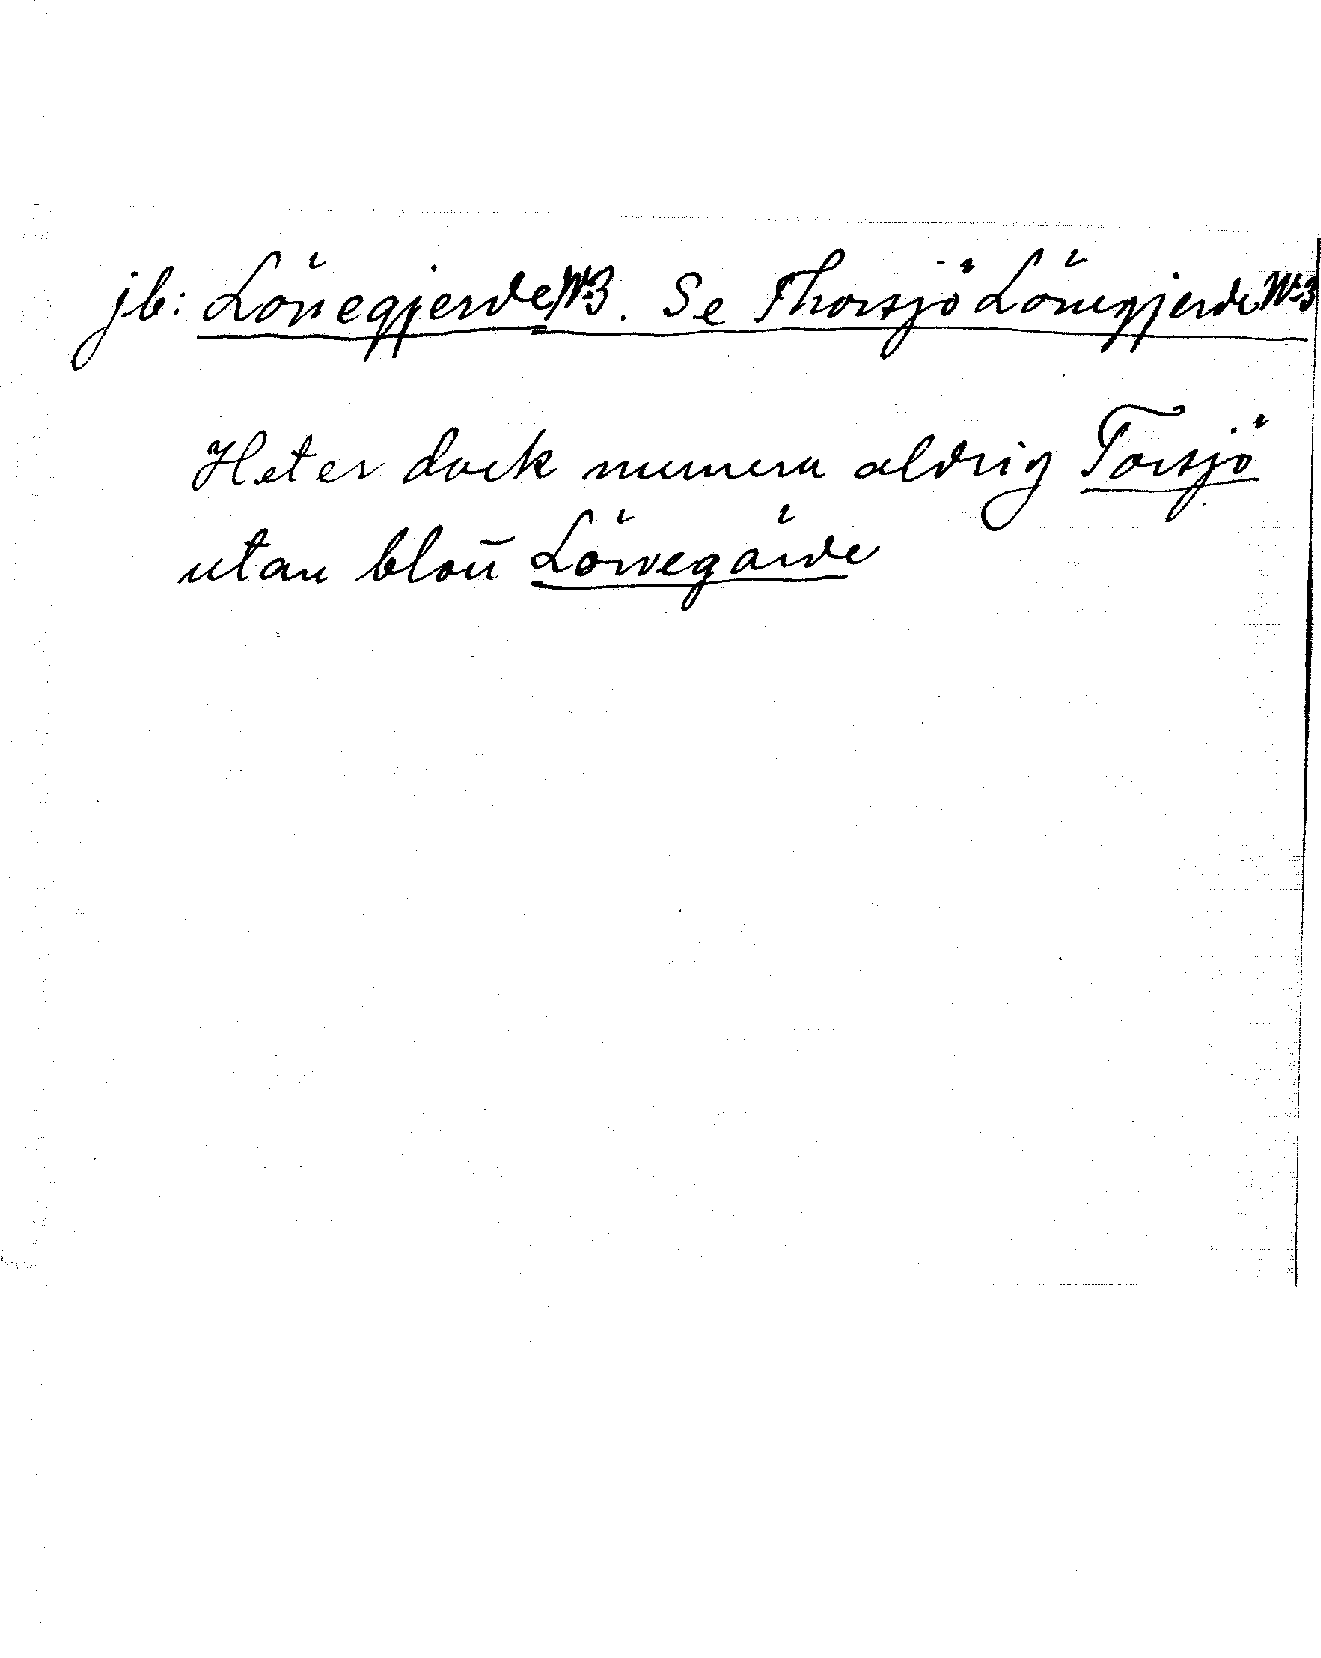 jb: Lönegjerde Nº3. Se Thorsjö Lönegjerde Nº3
Heter dock numera aldrig Torsjö
utan blott Lönegärde